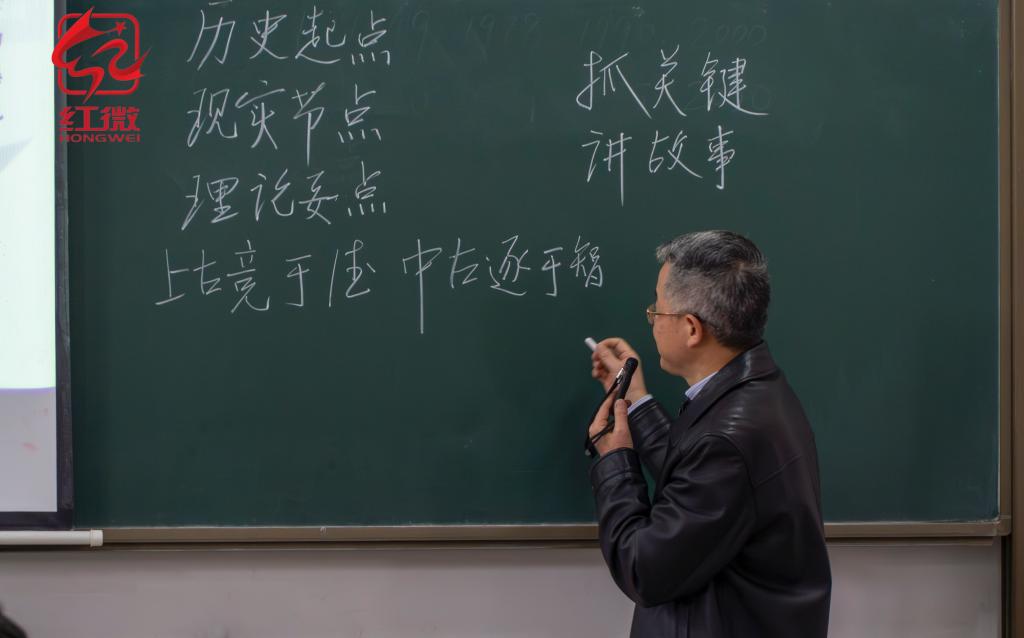 红微
HONGWEI
历史起点
现实节点
理论要点
上古竞于德 中古逐于智
抓关键
讲故事